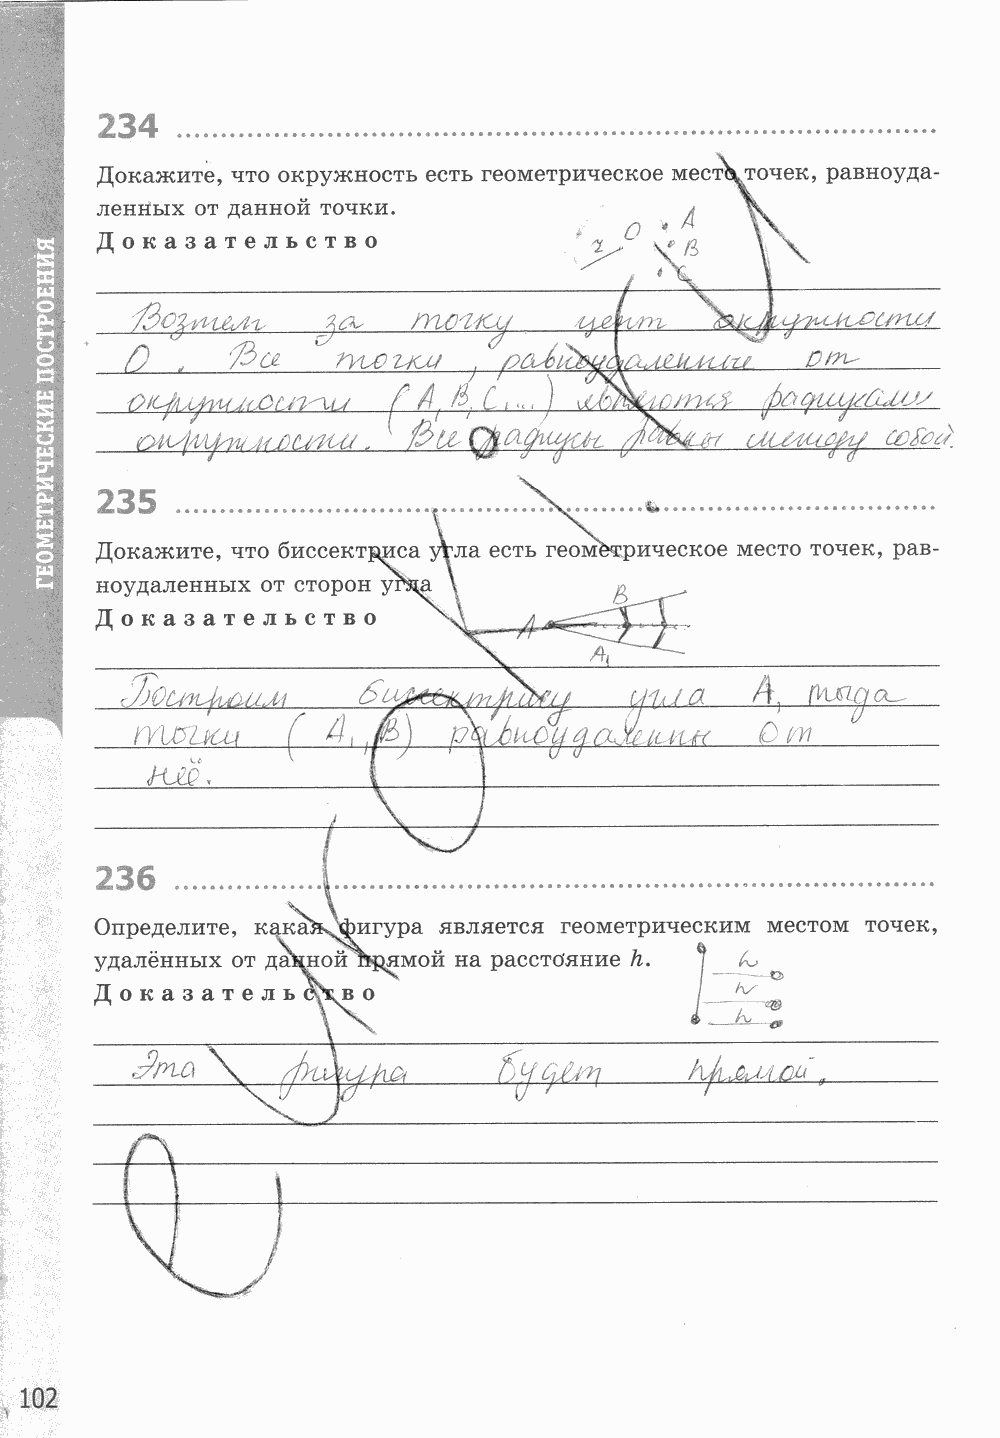 ГЕОМЕТРИЧЕСКИЕ ПОСТРОЕНИЯ
234
Докажите, что окружность есть геометрическое место точек, равноуда-
ленных от данной точки.
Доказательство
r O A
B
C
Возмем за точку цент окружности
О. Все точки, равноудаленные от
окружности (А, В, С, ...) являются радиусами
окружности. Все радиусы равны между собой.
235
Докажите, что биссектриса угла есть геометрическое место точек, рав-
ноудаленных от сторон угла
Доказательство
B
A
A₁
Построим биссектрису угла А,
точки (А₁, В) равноудаленны от
неё.
236
Определите, какая фигура является геометрическим местом точек,
удалённых от данной прямой на расстояние h.
Доказательство
h
h
h
Эта фигура будет прямой.
102